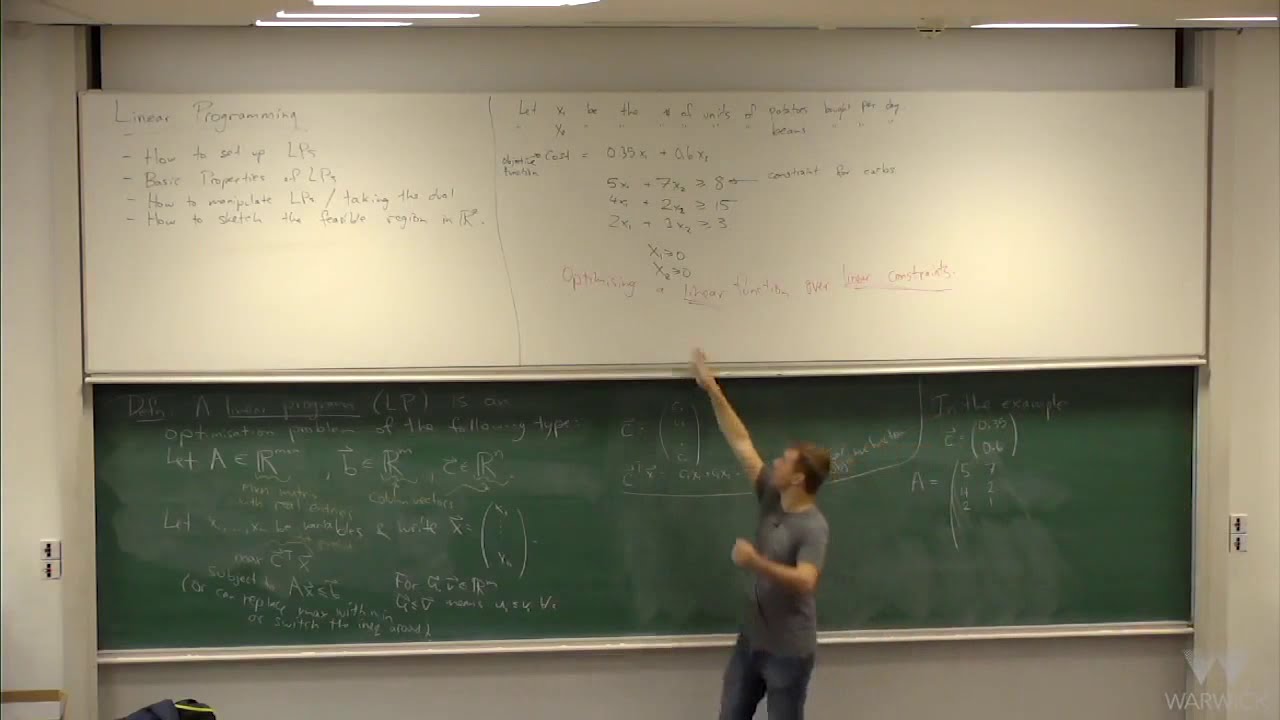 Linear Programming
- How to set up LPs
- Basic Properties of LPs
- How to manipulate LPs / taking the dual
- How to sketch the feasible region in ℝ².
Let x₁ be the # of units of potatoes bought per day.
" x₂ " " " " " " beans " " "
objective function → Cost = 0.35x₁ + 0.6x₂
5x₁ + 7x₂ ≥ 8 ← constraint for carbs
4x₁ + 2x₂ ≥ 15
2x₁ + x₂ ≥ 3
x₁ ≥ 0
x₂ ≥ 0
Optimising a linear function over linear constraints.
Defn: A linear program (LP) is an
optimisation problem of the following type:
Let A ∈ ℝᵐˣⁿ, b⃗ ∈ ℝᵐ, c⃗ ∈ ℝⁿ.
matrix column vectors
with real entries
Let x₁,...,xₙ be variables & write x⃗ = (x₁ ⋮ xₙ).
max c⃗ᵀx⃗
subject to Ax⃗ ≤ b⃗
(Or can replace max with min
or switch the ineq around)
For u⃗, v⃗ ∈ ℝᵐ
u⃗ ≤ v⃗ means uᵢ ≤ vᵢ ∀i
c⃗ =
c⃗ᵀx⃗ = c₁x₁ + c₂x₂
In the example
c⃗ = (0.35
0.6)
A = (5 7
4 2
2 1
WARWICK